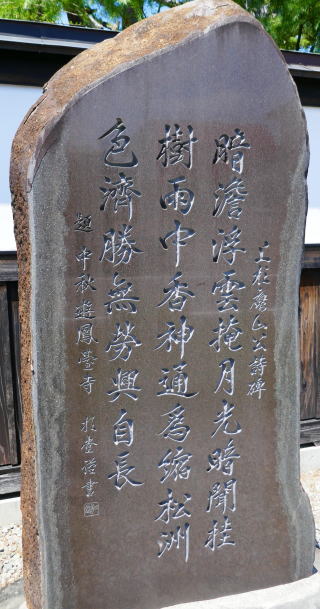 上杉鷹山公詩碑
暗澹浮雲掩月光暗聞桂
樹雨中香神通為縮松洲
色濟勝無勞興自長
題 中秋遊鳳臺寺